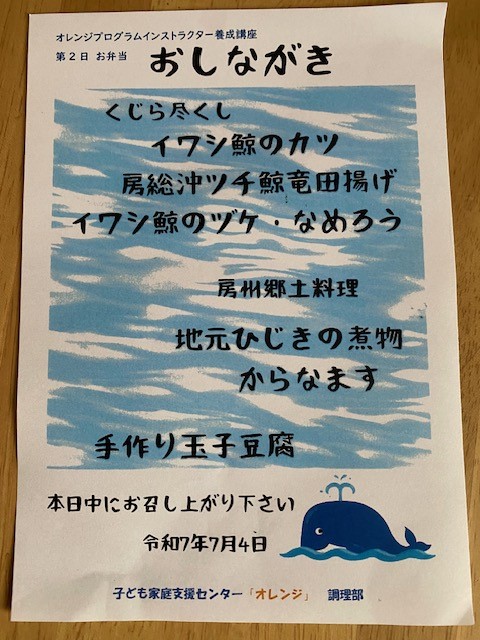 オレンジプログラムインストラクター養成講座
第2日 お弁当
おしながき
くじら尽くし
イワシ鯨のカツ
房総沖ツチ鯨竜田揚げ
イワシ鯨のヅケ・なめろう
房州郷土料理
地元ひじきの煮物
からなます
手作り玉子豆腐
本日中にお召し上がり下さい
令和7年7月4日
子ども家庭支援センター「オレンジ」 調理部